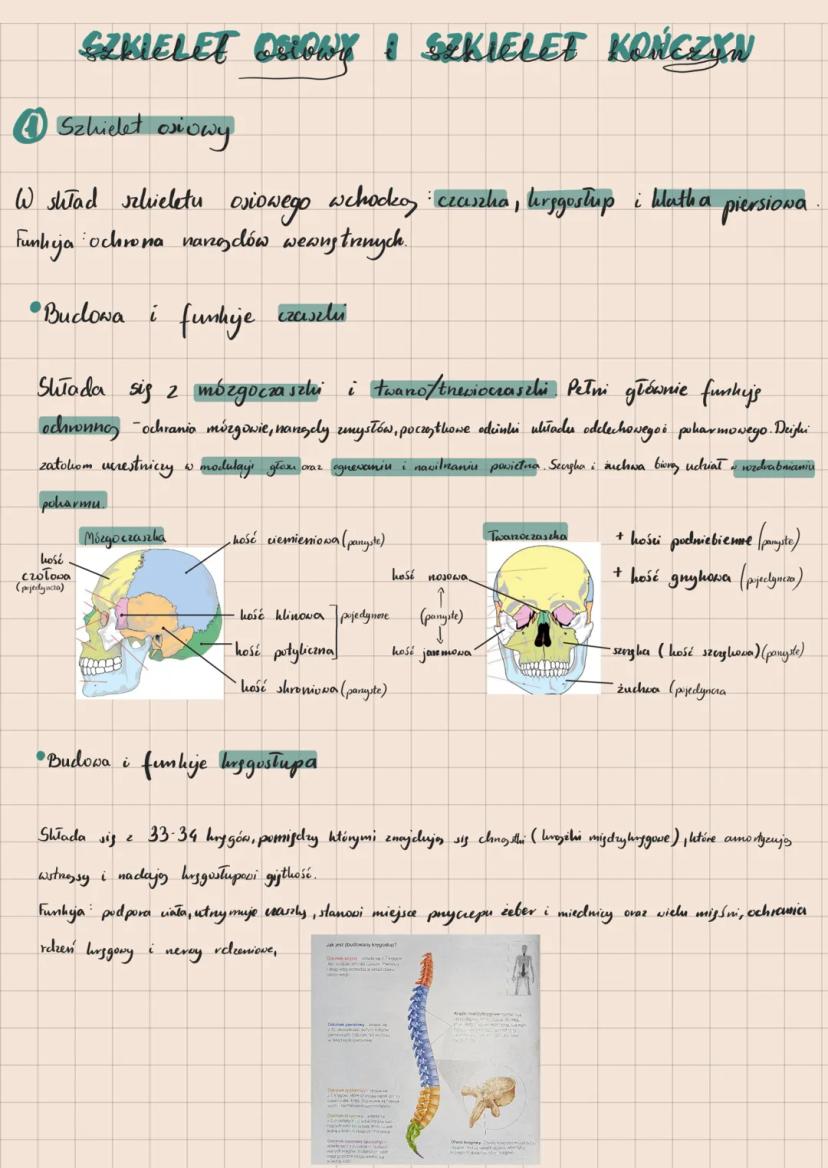 SZKIELET OSIOWY I SZKIELET KOŃCZYN
szkielet osiowy i szkielet kończyn
1 Szkielet osiowy
W skład szkieletu osiowego wchodzą: czaszka, kręgosłup i klatka piersiowa.
Funkcja: ochrona narządów wewnętrznych.
• Budowa i funkcje czaszki
Składa się z mózgoczaszki i twarzo/trzewioczaszki. Pełni głównie funkcję
ochronną - ochrania mózgowie, narządy zmysłów, początkowe odcinki układu oddechowego i pokarmowego. Dzięki
zatokom uczestniczy w modulacji głosu oraz ogrzewaniu i nawilżaniu powietrza. Szczęka i żuchwa biorą udział w rozdrabnianiu
pokarmu.
Mózgoczaszka
kość czołowa (pojedyncza)
kość ciemieniowa (parzyste)
kość klinowa
kość potyliczna
pojedyncze
kość skroniowa (parzyste)
Twarzoczaszka
kość nosowa
(parzyste)
kość jarzmowa
+ kości podniebienne (parzyste)
+ kość gnykowa (pojedyncza)
szczęka (kość szczękowa) (parzyste)
żuchwa (pojedyncza
• Budowa i funkcje kręgosłupa
Składa się z 33-34 kręgów, pomiędzy którymi znajdują się chrząstki (krążki międzykręgowe), które amortyzują
wstrząsy i nadają kręgosłupowi giętkość.
Funkcja: podpora ciała, utrzymuje czaszkę, stanowi miejsce przyczepu żeber i miednicy oraz wielu mięśni, ochrania
rdzeń kręgowy i nerwy rdzeniowe,
Jak jest zbudowany kręgosłup?